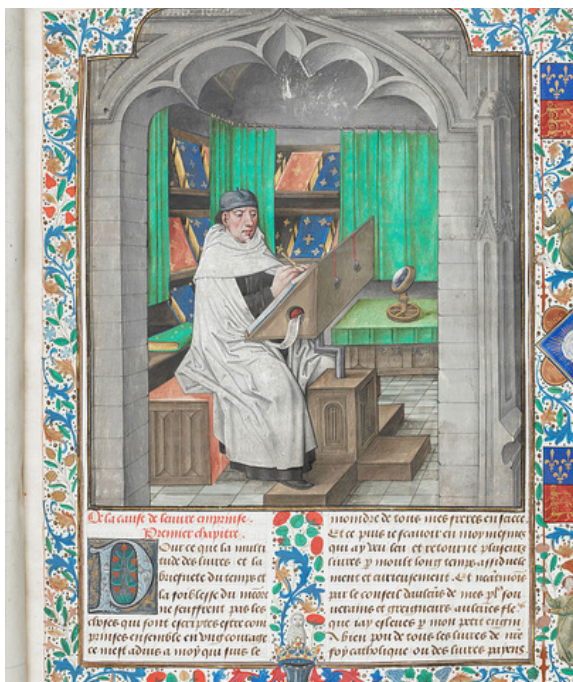 De la cause de leuure emprinse.
Premier chapitre
Pour ce que la multi
tude des liures et la
briefuete du temps et
la foiblesse du
ne seuffrent pas les
choses qui sont escriptes estre com
prinses ensemble en vng courage
ce mest aduis a moy qui suis le
moindre de tous mes freres en
Et ce puis ie scauoir en moy mesmes
qui ay veu leu et retourne pluseurs
liures p moult long temps assiduele
ment et curieusement. Et
par le conseil daulcuns de mes plꝰ sou
uerains et greigneurs
que iay esleues p mon petit engin
A bien pou de tous les liures de nre
foy catholique ou des liures payens